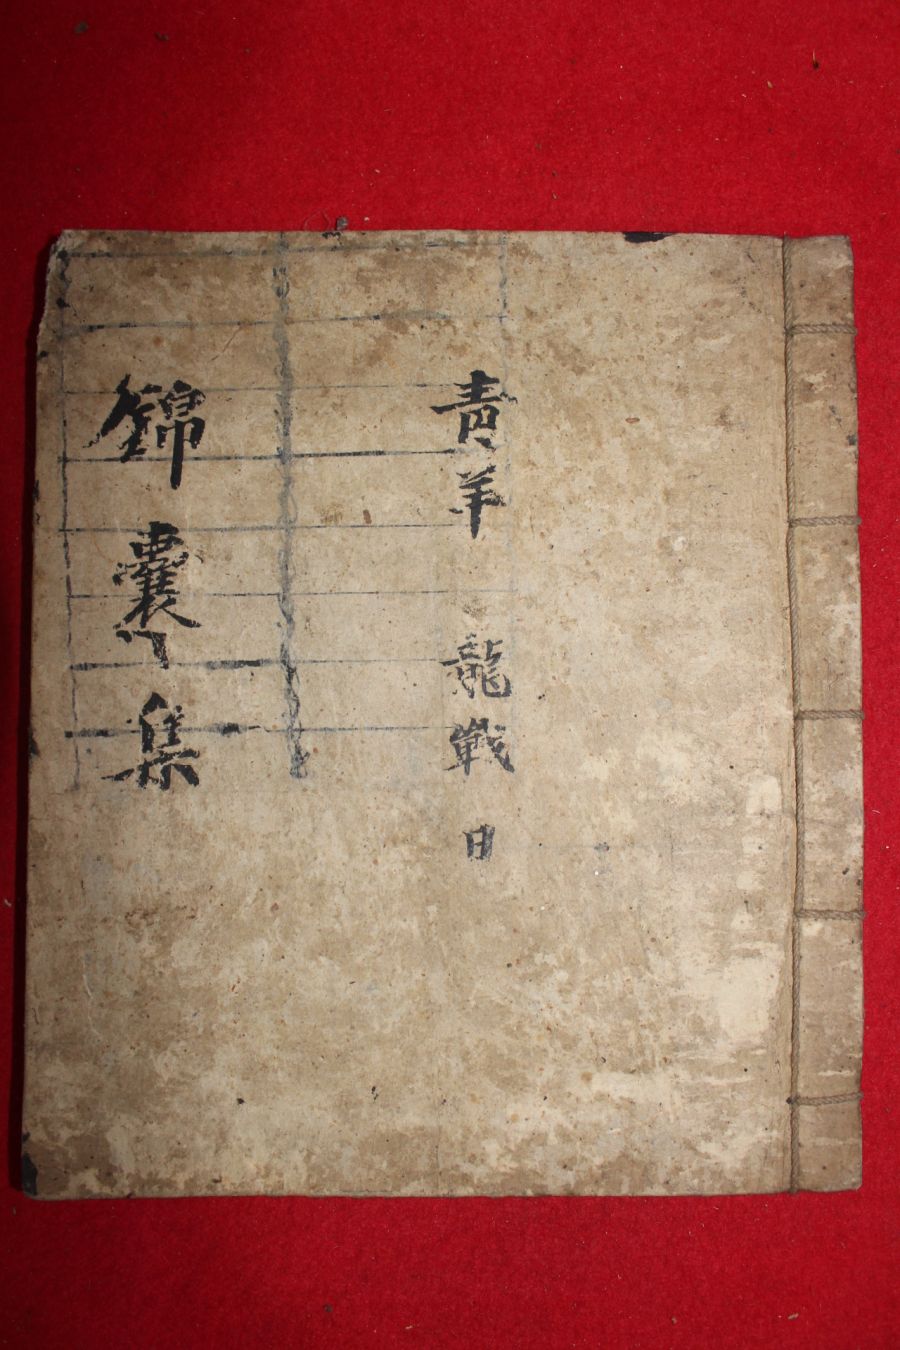 青羊 龍戰日
錦囊集